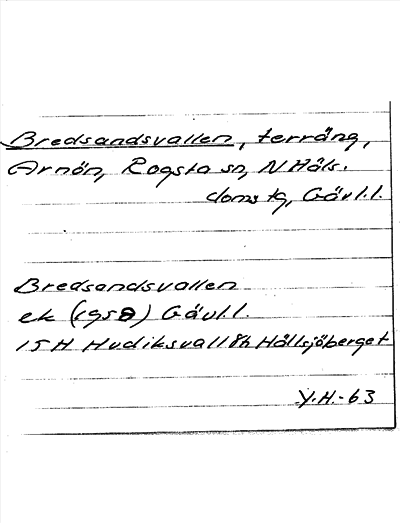 Bredsandsvallen, terräng,
Arnön, Rogsta sn, N Häls.
doms tg, Gävl.l.
Bredsandsvallen
ek (1958) Gävl.l.
15H Hudiksvall 8h Hällsjöberget
Y.H.-63